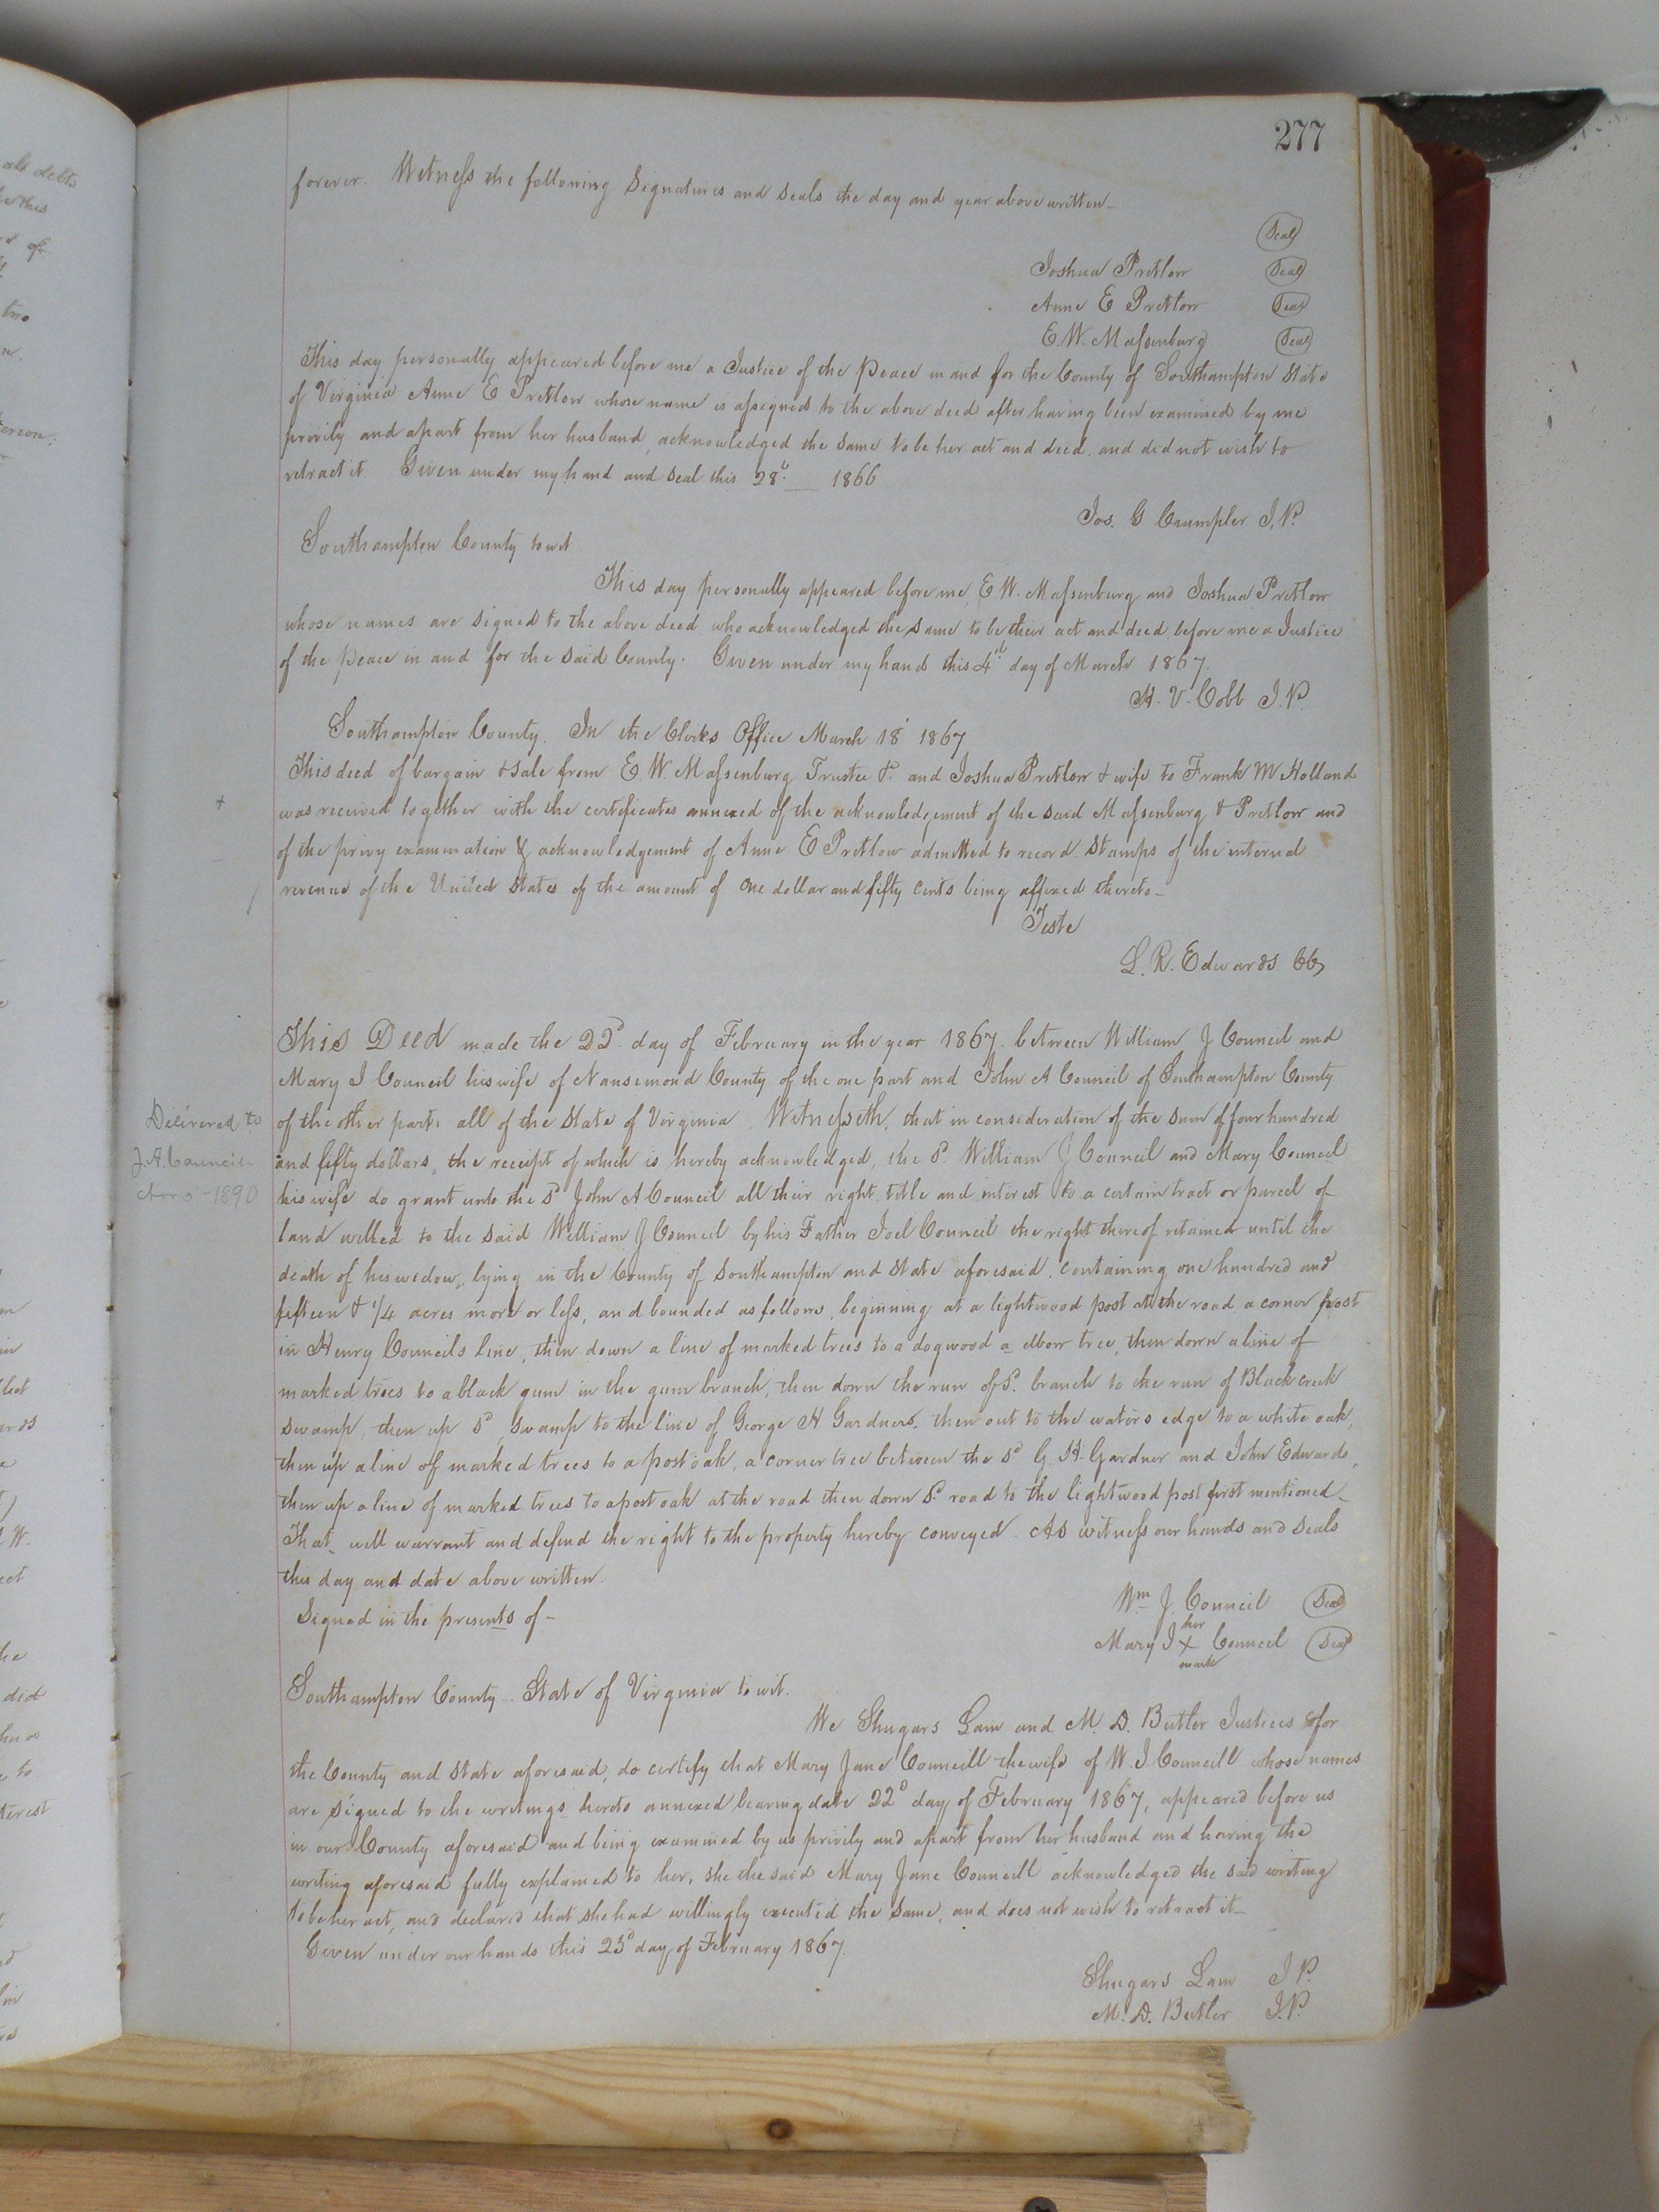 277
forever. Witness the following Signatures and Seals the day and year above written_
Seal
Joshua Pretlow Seal
Anne E Pretlow Seal
E. W. Massenburg Seal
This day personally appeared before me a Justice of the Peace in and for the County of Southampton State
of Virginia Anne E Pretlow whose name is assigned to the above deed after having been examined by me
privily and apart from her husband, acknowledged the same to be her act and deed. and did not wish to
retract it. Given under my hand and seal this 28th __ 1866
Jos. G Crumpler J.P.
Southampton County to wit
This day personally appeared before me, E. W. Massenburg and Joshua Pretlow
whose names are signed to the above deed who acknowledged the same to be their act and deed before me a Justice
of the Peace in and for the said County. Given under my hand this 4th day of March 1867.
H. V. Cobb J.P.
Southampton County. In the Clerks Office March 18 1867
This deed of bargain & sale from E. W. Massenburg Trustee &c. and Joshua Pretlow & wife to Frank M Holland
was received together with the certificates annexed of the acknowledgement of the said Massenburg & Pretlow and
of the privy examination & acknowledgement of Anne E Pretlow admitted to record. Stamps of the internal
revenue of the United States of the amount of One dollar and fifty cents being affixed thereto_
Teste
L. R. Edwards CC
This Deed made the 22d. day of February in the year 1867. between William J Council and
Mary J Council his wife of Nansemond County of the one part and John A Council of Southampton County
of the other part: all of the State of Virginia. Witnesseth, that in consideration of the sum of four hundred
and fifty dollars, the receipt of which is hereby acknowledged, the Sd. William J Council and Mary Council
his wife do grant unto the Sd John A Council all their right title and interest to a certain tract or parcel of
land willed to the said William J Council by his Father Joel Council the right thereof retained until the
death of his widow, lying in the County of Southampton and State aforesaid. containing one hundred and
fifteen & 1/4 acres more or less, and bounded as follows, beginning at a lightwood post at the road a corner post
in Henry Councils line, then down a line of marked trees to a dogwood a elbow tree, then down a line of
marked trees to a black gum in the gum branch, then down the run of Sd. branch to the run of Black creek
swamp, then up Sd swamp to the line of George H Gardners. then out to the waters edge to a white oak,
then up a line of marked trees to a post oak, a corner tree between the Sd G. H. Gardner and John Edwards,
then up a line of marked trees to a post oak at the road then down Sd. road to the lightwood post first mentioned_
That_ will warrant and defend the right to the property hereby conveyed. As witness our hands and seals
this day and date above written.
Signed in the presents of -
Wm J. Council Seal
her
Mary J x Council Seal
mark
Delivered to
J. A. Council
Nov 5 - 1890
Southampton County - State of Virginia to wit.
We Shugars Lain and M. D. Butler Justices for
the County and State aforesaid, do certify that Mary Jane Councill the wife of W. J. Councill whose names
are signed to the writings hereto annexed bearing date 22d day of February 1867, appeared before us
in our County aforesaid and being examined by us privily and apart from her husband and having the
writing aforesaid fully explained to her, she the said Mary Jane Councill acknowledged the said writing
to be her act, and declared that she had willingly executed the same, and does not wish to retract it_
Given under our hands this 23d day of February 1867.
Shugars Lain J.P.
M. D. Butler J.P.